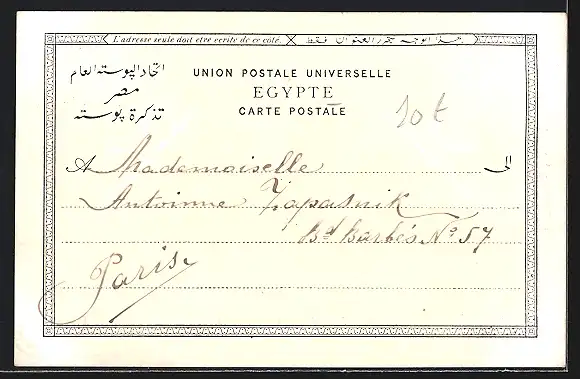 L'adresse seule doit etre ecrite de ce côté.
هذا الوجه محرر العنوان فقط
اتحاد البوسته العام
مصر
تذكرة پوسته
UNION POSTALE UNIVERSELLE
EGYPTE
CARTE POSTALE
10t
A Mademoiselle
الى
Antoinne Zapasnik
Bd Barbés No 57
Paris